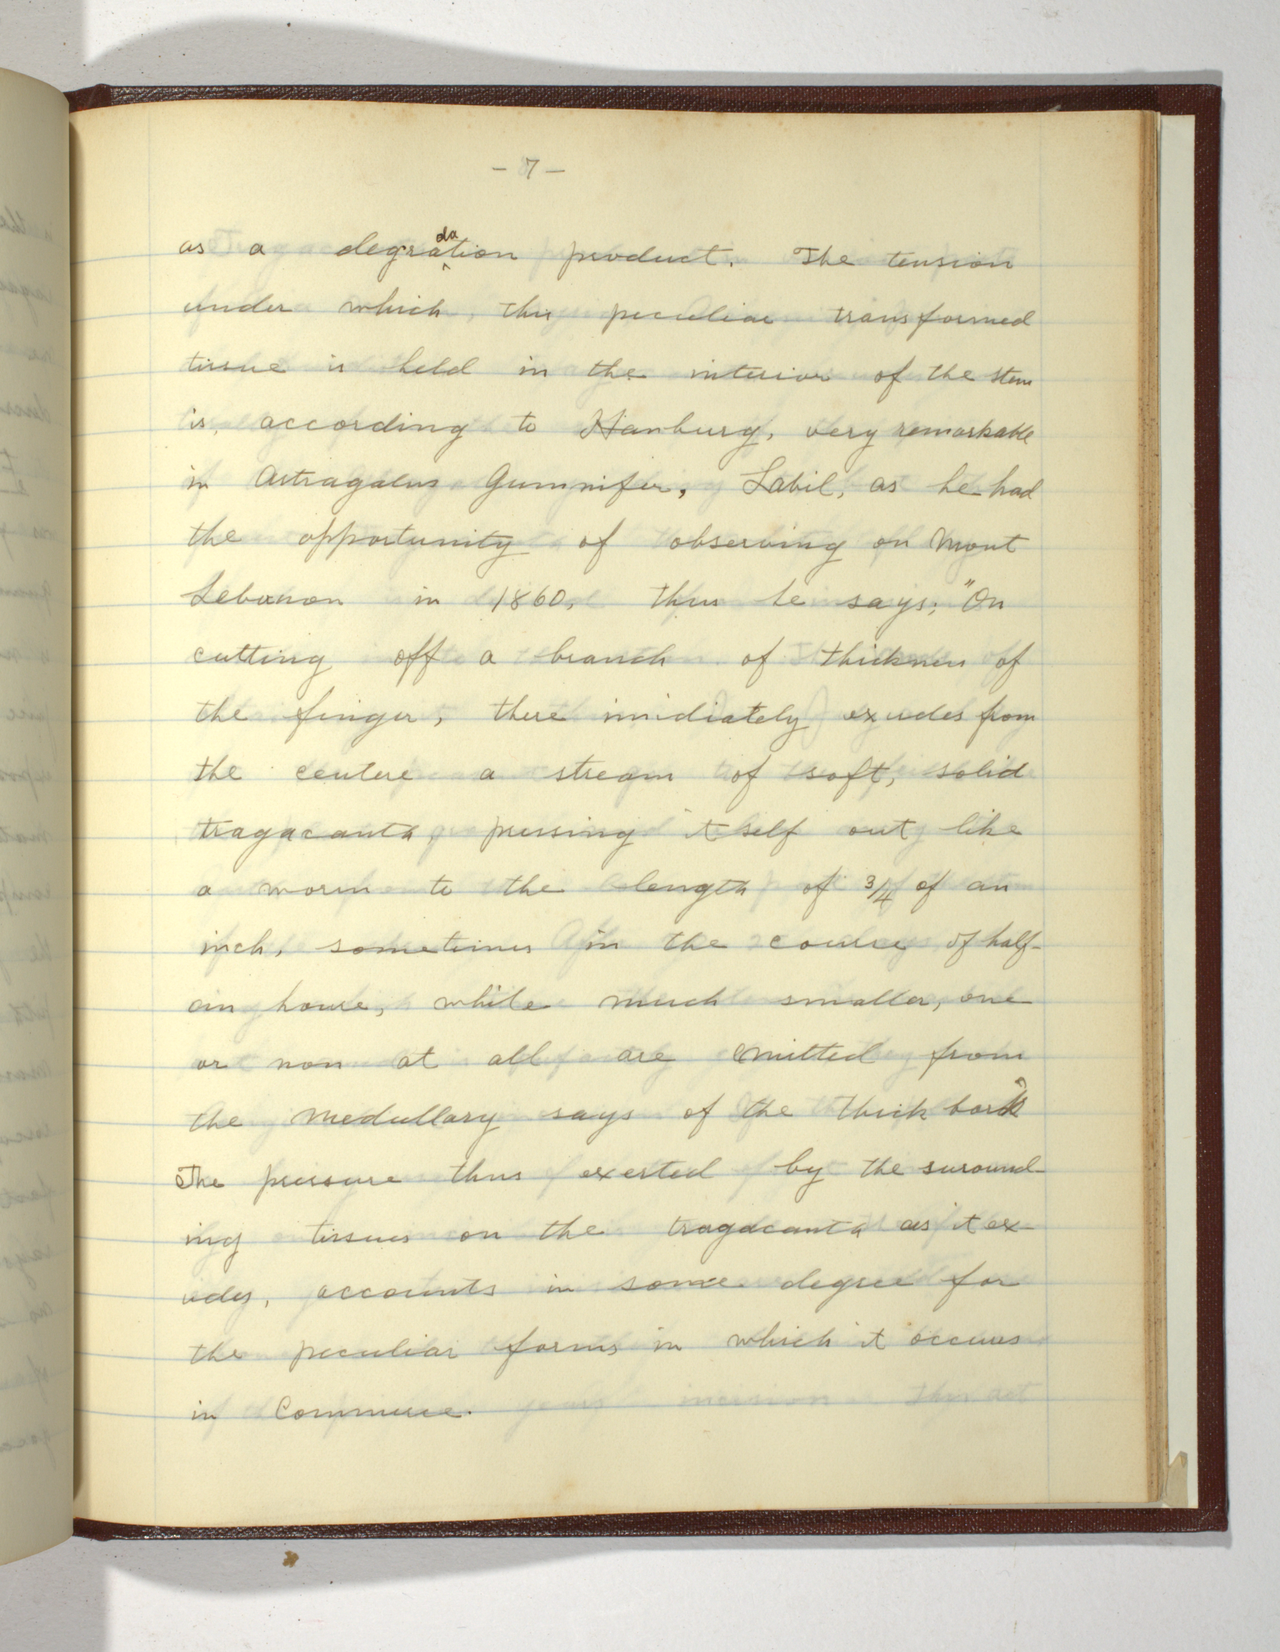 - 7 -
as a degradation product. The tension
under which, this peculiar transformed
tissue is held in the interior of the stem
is, according to Hanburg, very remarkable
in Astragalus Gummifer, Labil, as he had
the opportunity of observing on Mont
Lebanon in 1860, thus he says; "On
cutting off a branch of thickness of
the finger, there imidiately exudes from
the centere a stream of soft, solid
tragacanth, pressing it self out like
a worm to the length of 3/4 of an
inch, sometimes in the course of half-
an houre, while much smaller, one
or non at all are emitted from
the medullary says of the thick bark"
The pressure thus exerted by the suround-
ing tissues on the tragacanth as it ex-
udes, accounts in some degree for
the peculiar forms in which it occurs
in Commerce.